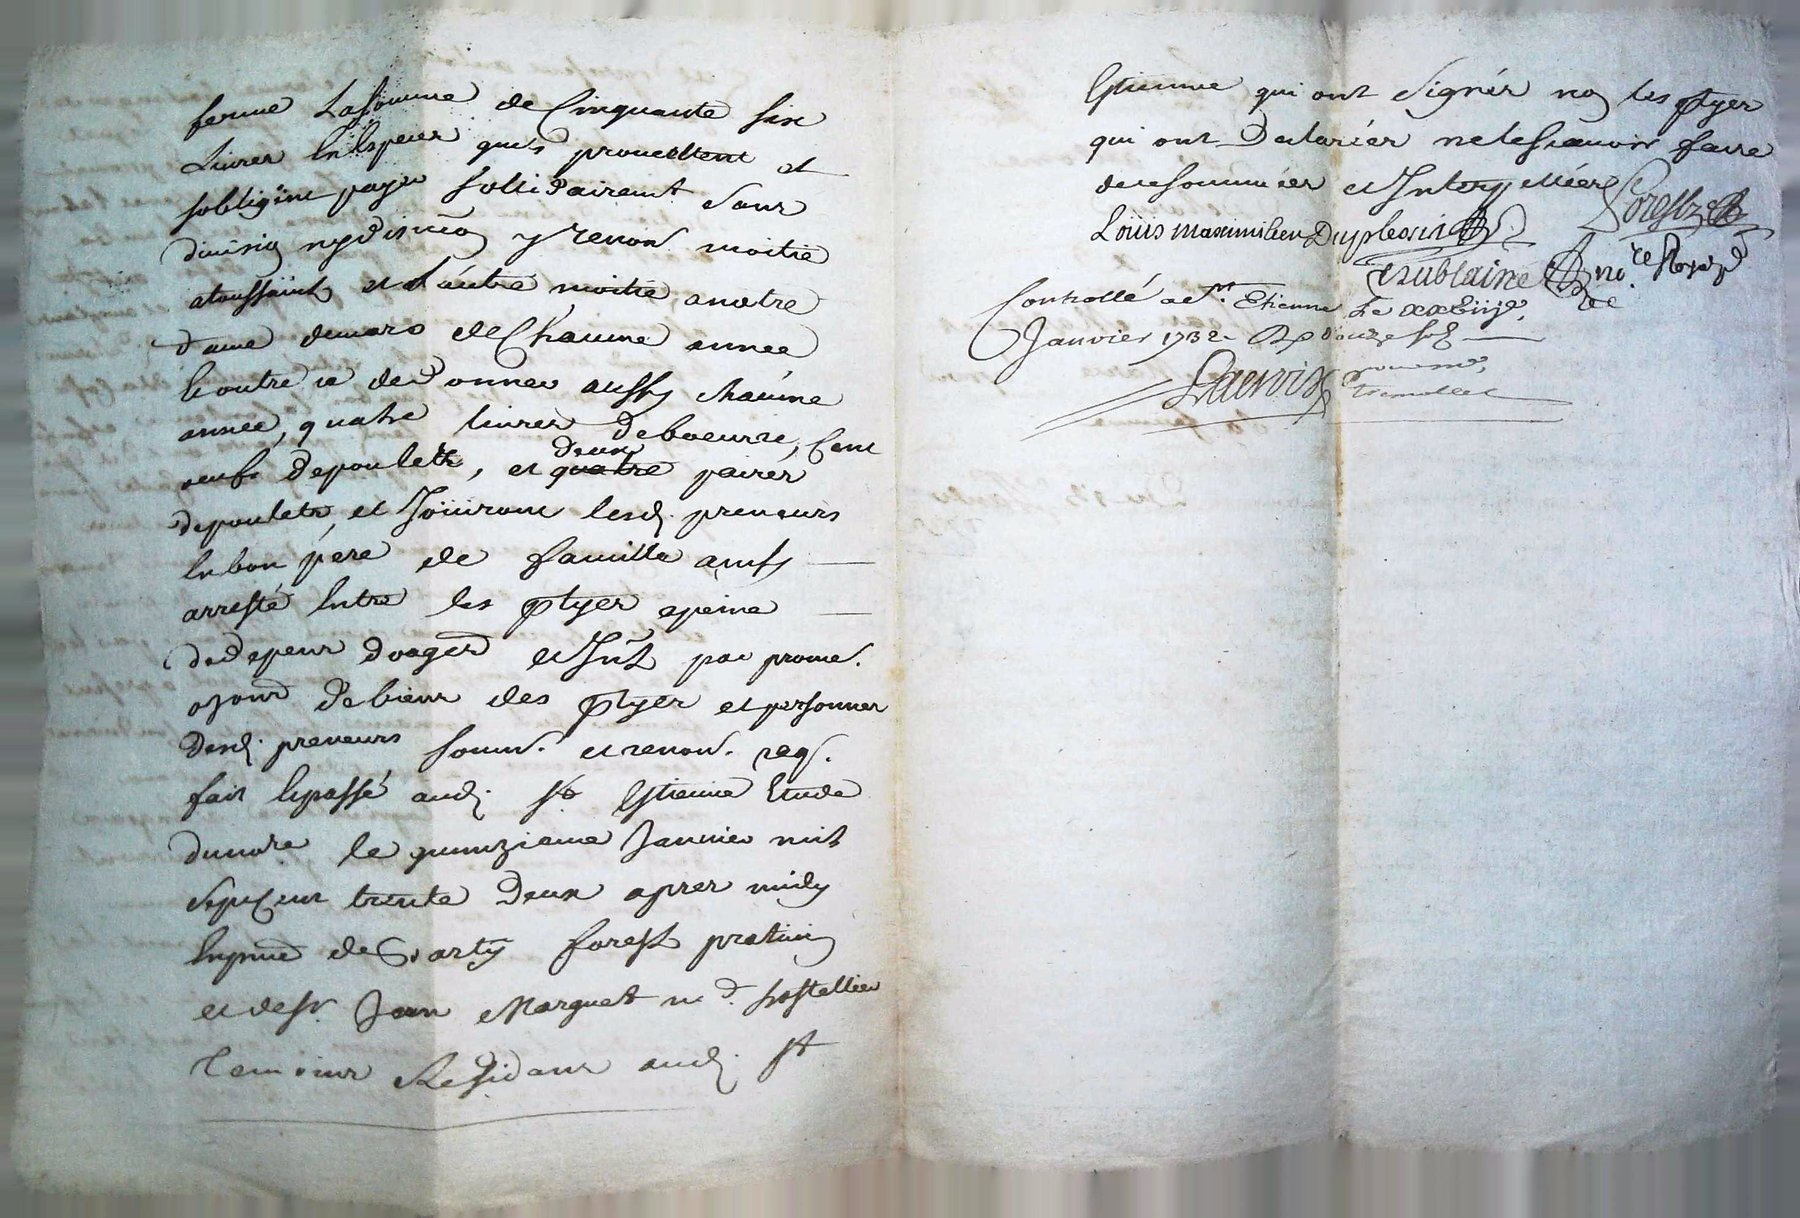 ferme La somme de Cinquante six
Livres En Especes quils promettent et
sobligent payer sollidairemt. sans
division ny discution y renon. moitié
atoussaint et l'autre moitié a notre
dame de mars de Chacune année
En outre ce de donner aussy chacune
année, quatre livres de beurre, Cent
oeufs de poulets, et deux quatre paires
de poulets, et Joüiront lesd. preneurs
En bon pére de famille ainsy
arresté Entre les ptyes a peine
de depens domges et Int par prome.
oblion de biens des ptyes et personnes
desd. preneurs soum. et renon. req.
fait Et passé aud. St Estienne Etude
du nore le quinzieme Janvier mil
sept Cent trente deux apres midy
En pnce de forest praticien
et de sr. Jean Marquet md. hostellier
temoins Residans aud. St
Estienne qui ont signés non les ptyes
qui ont Declarées ne le sçavoir faire
de ce sommées et Interpellées Forest
Loüis maximilien Duplessis
nore Royal
Controllé a St. Etienne Le xxviije
Janvier 1732 R douze sols